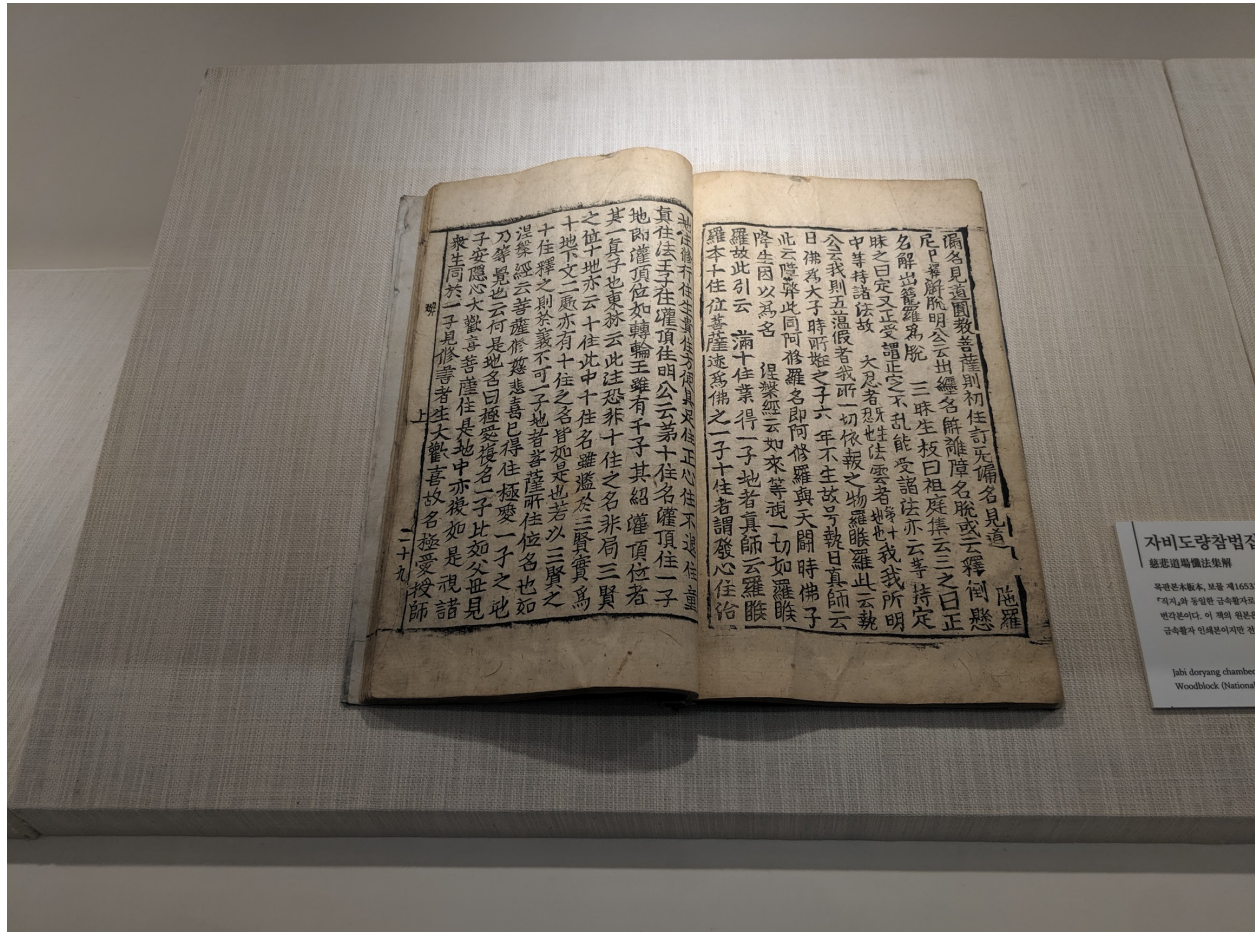 偏名見道圓教菩薩則初住訂旡偏名見道 陁羅
尼曰解脫明公云出纏名解離障名脫或云釋倒懸
名解出籠羅爲脫 三昧生板曰祖庭集云三之曰正
昧之曰定又正受謂正定之不乱能受諸法亦云䓁持定
中䓁持諸法故 大忍者忍也法雲者地也我我所明
公云我則五蕰假者我所一切依報之物羅睺羅此云執
日佛爲太子時所之子六年不生故号執日真師云
此云障弊此同阿修羅名即阿修羅與天鬪時佛子
降生因以爲名 涅槃經云如來等視一切如羅睺
羅故此引云 滿十住業得一子地者真師云羅睺
羅本十住位菩薩速爲佛之一子十住者謂發心住治
地住修行住生貴住方便具足住正心住不退住童
真住法王子住灌頂住明公云第十住名灌頂住一子
地即灌頂位如轉輪王雖有千子其紹灌頂位者
其一真子也東林云此注恐非十住之名非局三賢
之位十地亦云十住此中十住名雖濫於三賢實爲
十地下文二處亦有十住之名皆如是也若以三賢之
十住釋之則於義不可一子地者菩薩所住位名也如
涅槃經云菩薩修慈悲喜已得住極愛一子之地
乃䓁覺也云何是地名曰極愛複名一子比如父毋見
子安隱心大歡喜菩薩住是地中亦複如是視諸
衆生同於一子見修善者生大歡喜故名極愛授師
上
二十九
자비도량참법집
慈悲道場懺法集解
목판본木版本, 보물 제1653
『직지』와 동일한 금속활자로
번각본이다. 이 책의 원본은
금속활자 인쇄본이지만 전
Jabi doryang chambeo
Woodblock (National